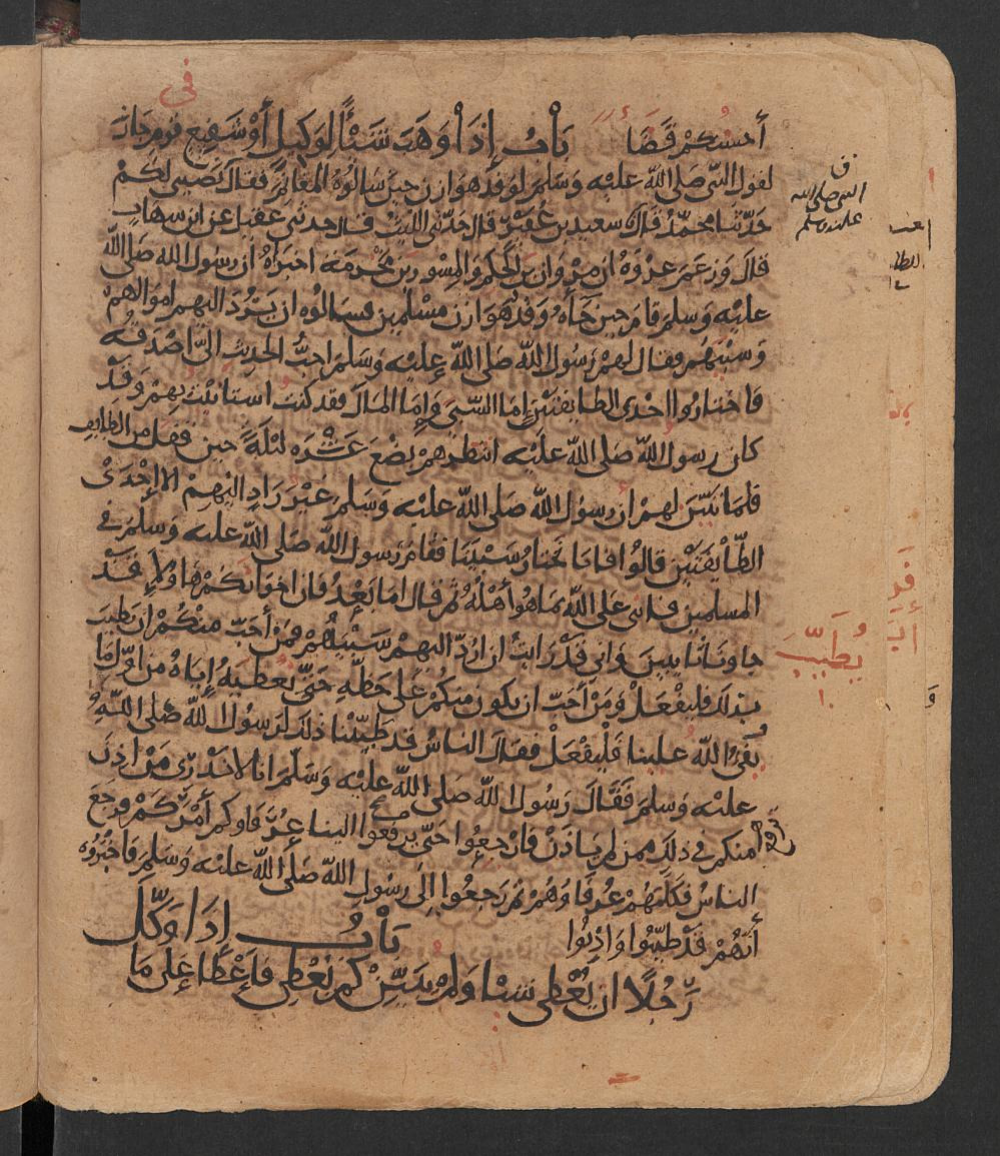 في
أحسنكم قضا باب إذا وهب شيئا لوكيل أو شفيع قوم جاز
لقول النبي صلى الله عليه وسلم لوفد هوازن حين سالوه المغانم فقال نصيبي لكم
ق
النبي صلى الله
عليه وسلم
حدثنا محمد قال سعيد بن عفير قال حدثني الليث قال حدثني عقيل عن ابن شهاب
قال وزعم عروة ان مروان بن الحكم والمسور بن مخرمة اخبراه ان رسول الله صلى الله
عليه وسلم قام حين جاه وفد هوازن مسلمين فسالوه ان يرد اليهم اموالهم
وسبيهم فقال لهم رسول الله صلى الله عليه وسلم احب الحديث الي اصدقه
فاختاروا احدى الطايفتين إما السبي وإما المال فقد كنت استانيت بهم وقد
كان رسول الله صلى الله عليه انتظرهم بضع عشره ليلة حين قفل من الطايف
فلما تبين لهم ان رسول الله صلى الله عليه وسلم غير راد اليهم الا إحدى
الطايفتين قالوا فانا نختار سبينا فقام رسول الله صلى الله عليه وسلم في
المسلمين فاثنى على الله بما هو أهله ثم قال اما بعد فان اخوانكم هاولاء قد
جاونا تايبين واني قد رايت ان ارد اليهم سبيهم فمن أحب منكم ان يطيب
يطيب
بذلك فليفعل ومن أحب ان يكون منكم على حظه حتى نعطيه إياه من اول ما
يفي الله علينا فليفعل فقال الناس قد طيبنا ذلك لرسول الله صلى الله
عليه وسلم فقال رسول الله صلى الله عليه وسلم انا لا ندري من اذن
منكم في ذلك ممن لم ياذن فارجعوا حتى يرفعوا الينا عرفاوكم أمركم فرجع
الناس فكلمهم عرفاوهم ثم رجعوا إلى رسول الله صلى الله عليه وسلم فاخبروه
أنهم قد طيبوا واذنوا باب إذا وكل
رجلا ان يعطي شيا ولم يبين كم يعطي فاعطا على ما